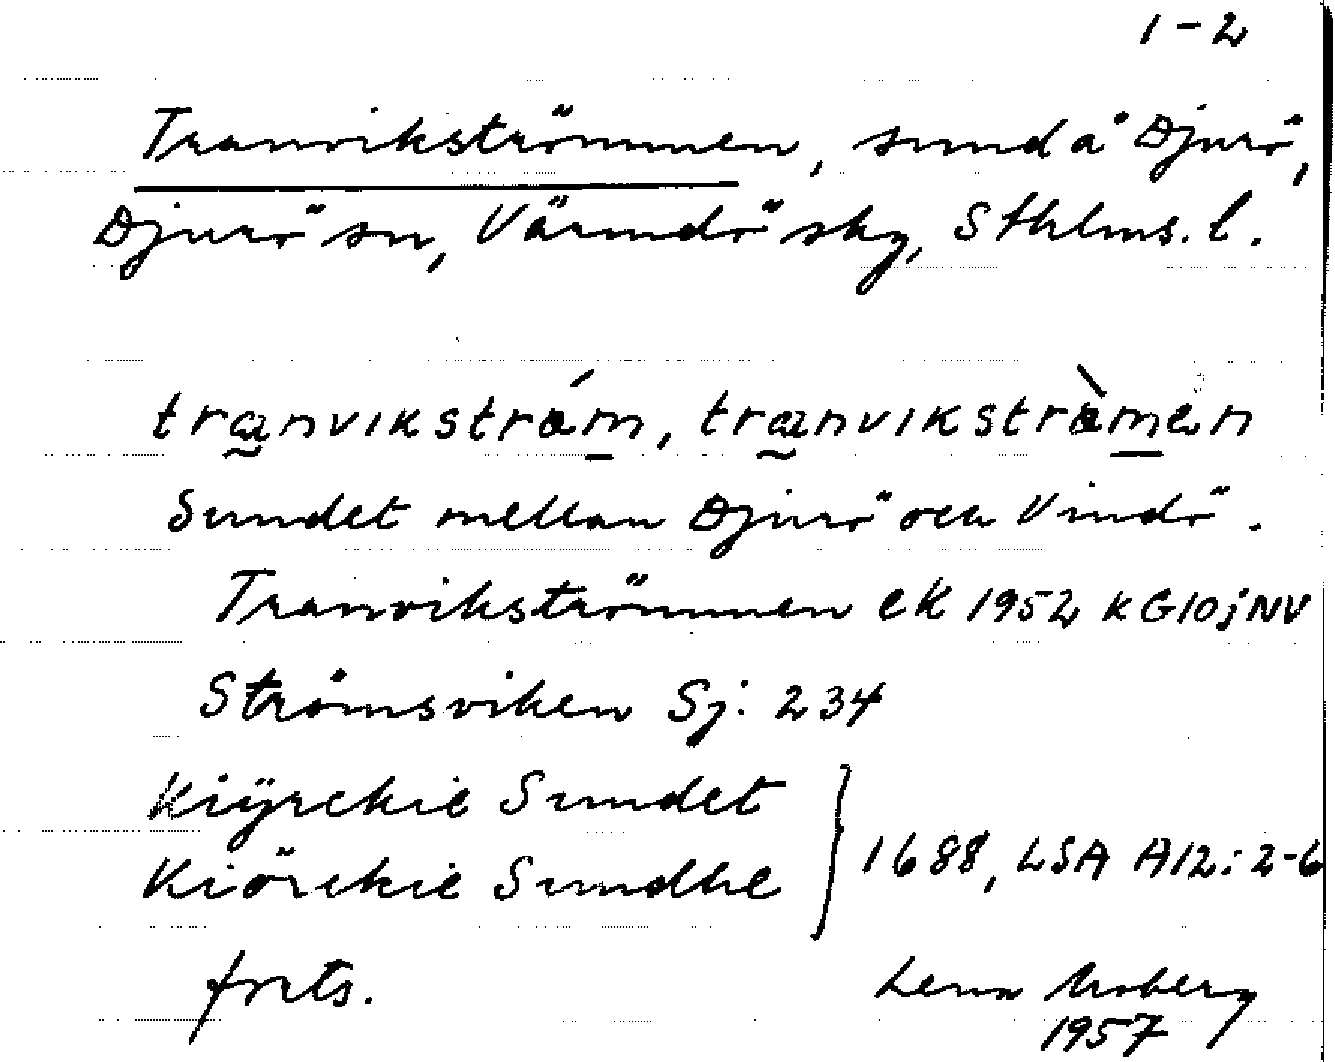 1-2
Tranvikströmmen, sund å Djurö,
Djurö sn, Värmdö sky, Sthlms. l.
tranvikström, tranvikströmen
Sundet mellan Djurö och Vindö.
Tranvikströmmen eK 1952 KG10jNV
Strömsviken Sj: 234
Kiÿrckie Sundet
Kiörckie Sundhe
1688, LSA A12:2-6
forts.
Lena Moberg
1957